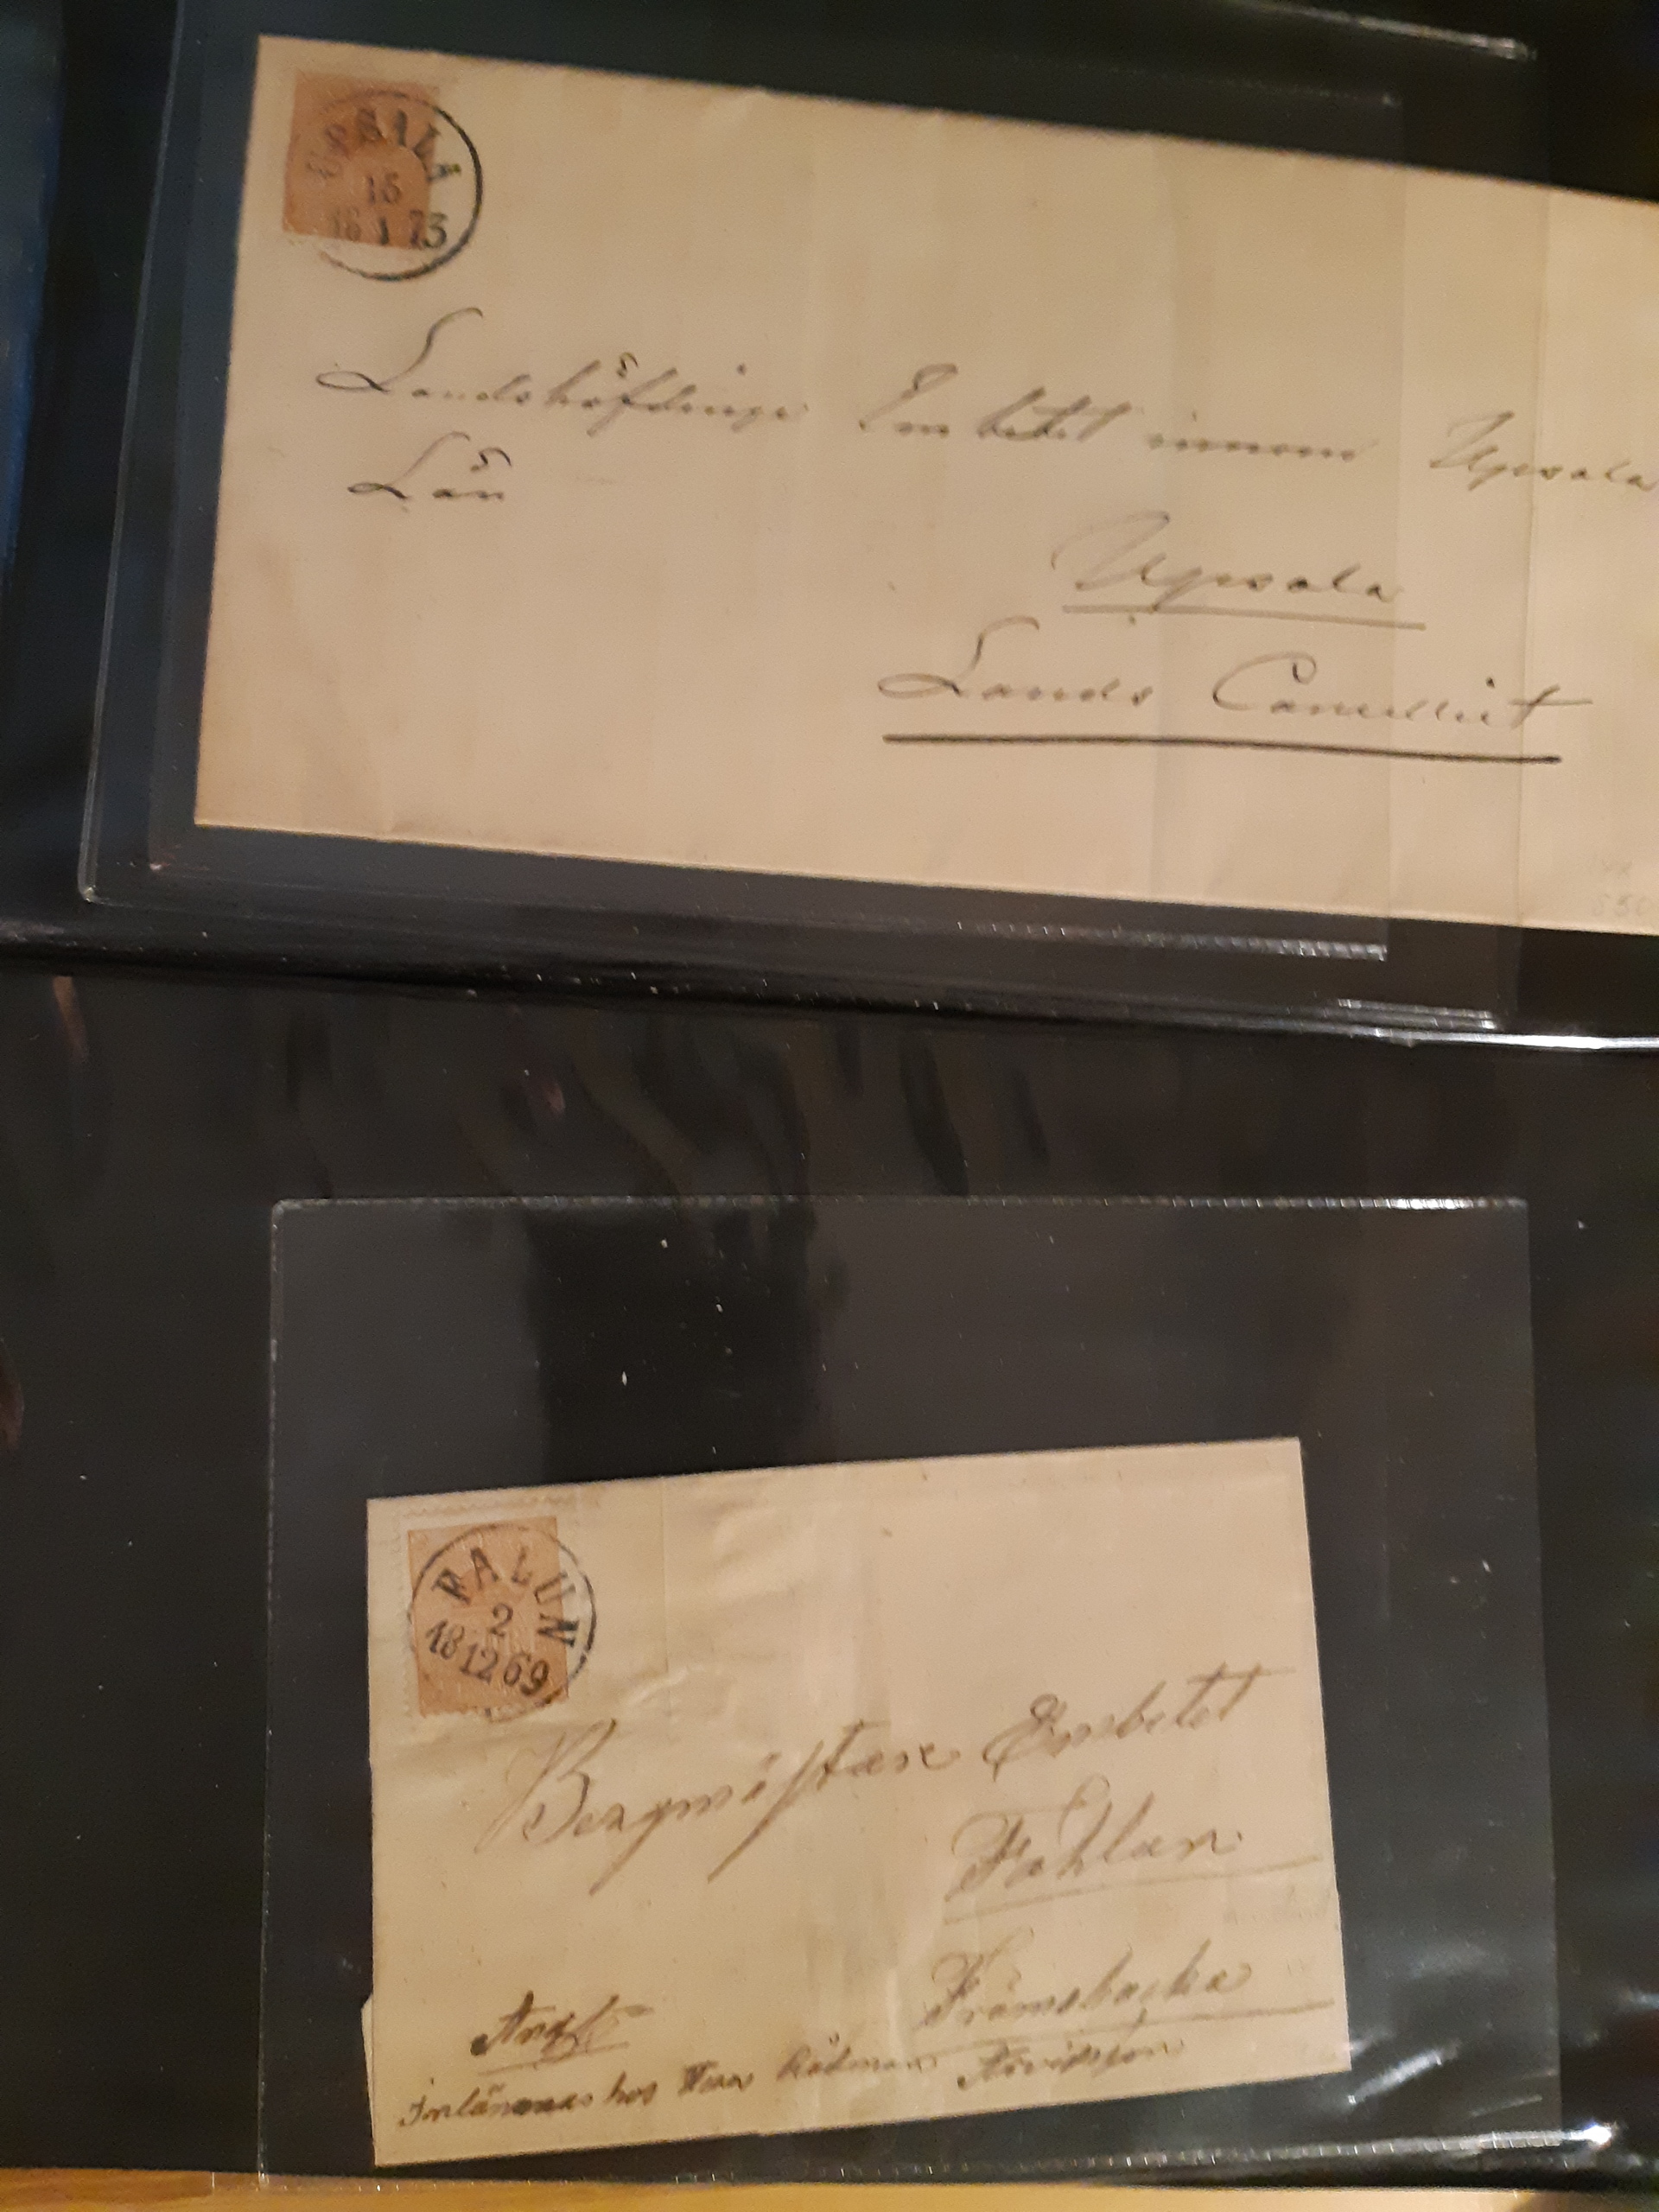 UPSALA
15
16 1 73
Landshöfdinge Embetet innom Upsala
Län
Upsala
Lands Cancelliet
FALUN
2
18 12 69
Bergmästare Embetet
Fahlun
Främsbacka
Angft
Inlämnas hos Rådman Arvidsson